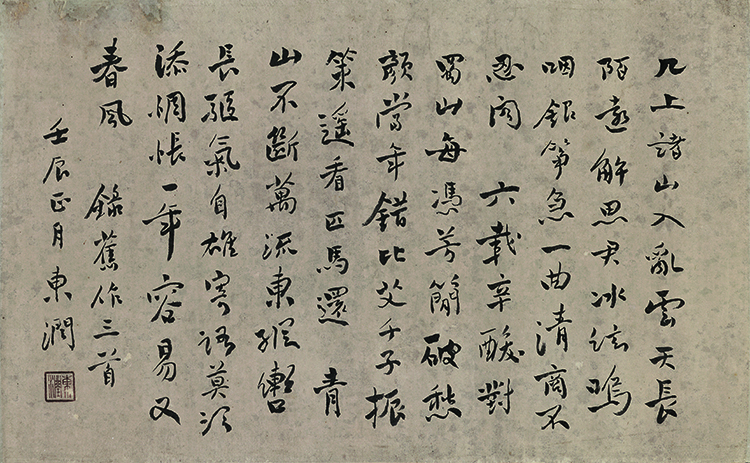 几上諸山入亂雲天長
陌遠解思君冰絃嗚
咽銀箏急一曲清商不
忍闻 六載辛酸對
蜀山每憑芳簡破愁
顏當年錯比艾千子振
策遥看匹馬還 青
山不斷萬流東縱轡
長驅氣自雄寄語莫須
添惆悵一年容易又
春風 錄舊作三首
壬辰正月東潤